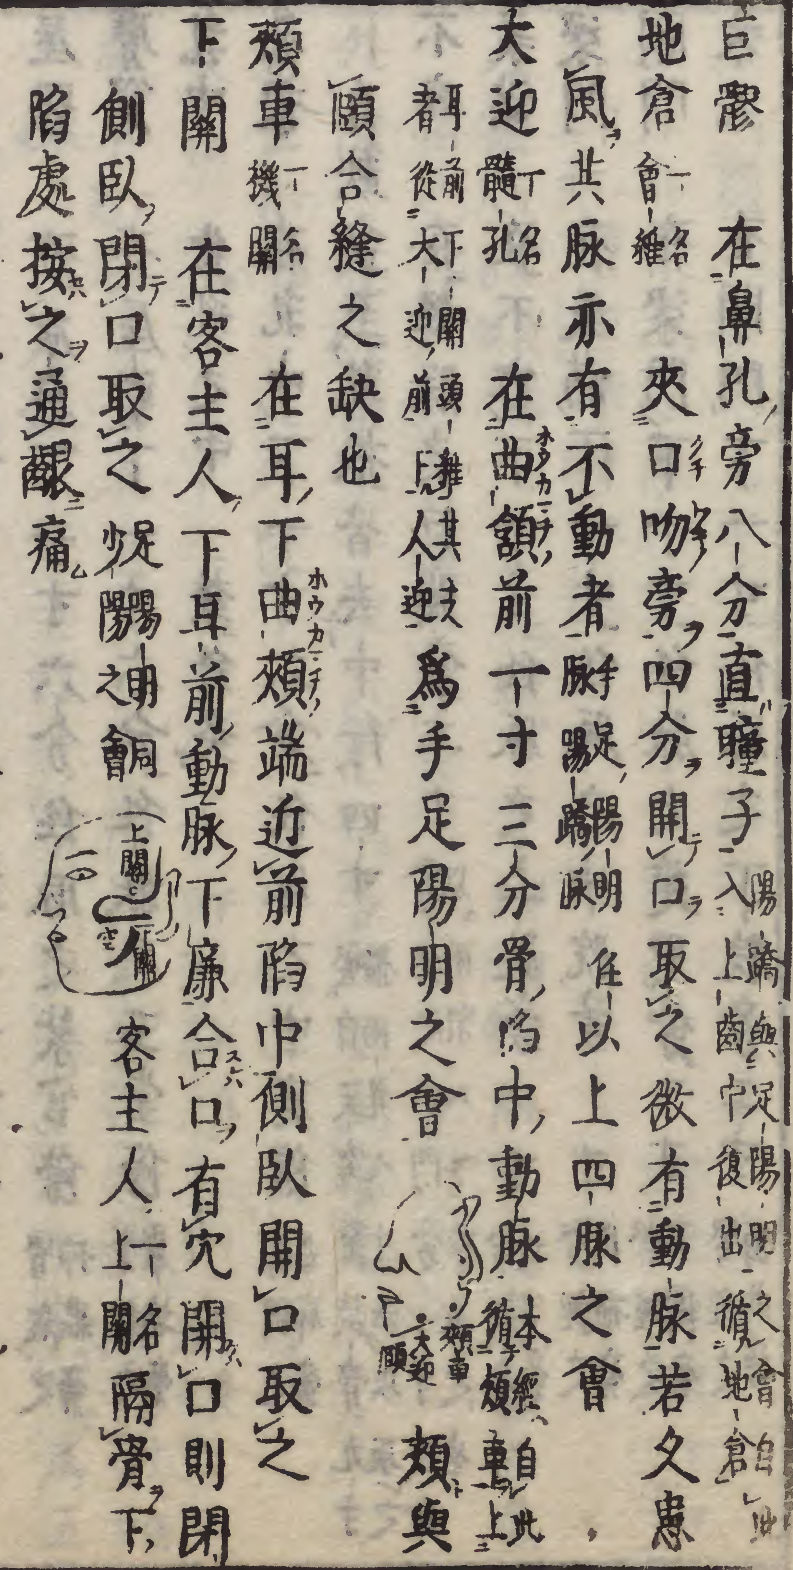 巨髎　在鼻孔旁八分直瞳子陽蹻與足陽明之會自此入上齒中復出循地倉
地倉一名會維　夾口吻旁四分開口取之微有動脉若久患
風其脉亦有不動者手足陽明任脉陽蹻脉以上四脉之會
大迎一名髓孔　在曲頷前一寸三分骨陷中動脉本經自此循頰車上
耳前下關頭維其支者從大迎前上人迎爲手足陽明之會　頰車　大迎　頤　頰與
頤合縫之缺也
頰車一名機關　在耳下曲頰端近前陷中側臥開口取之
下關　在客主人下耳前動脉下廉合口有穴開口則閉
側臥閉口取之足陽明少陽之會　上關　下關　空　客主人一名上關隔骨下
陷處按之通齦痛